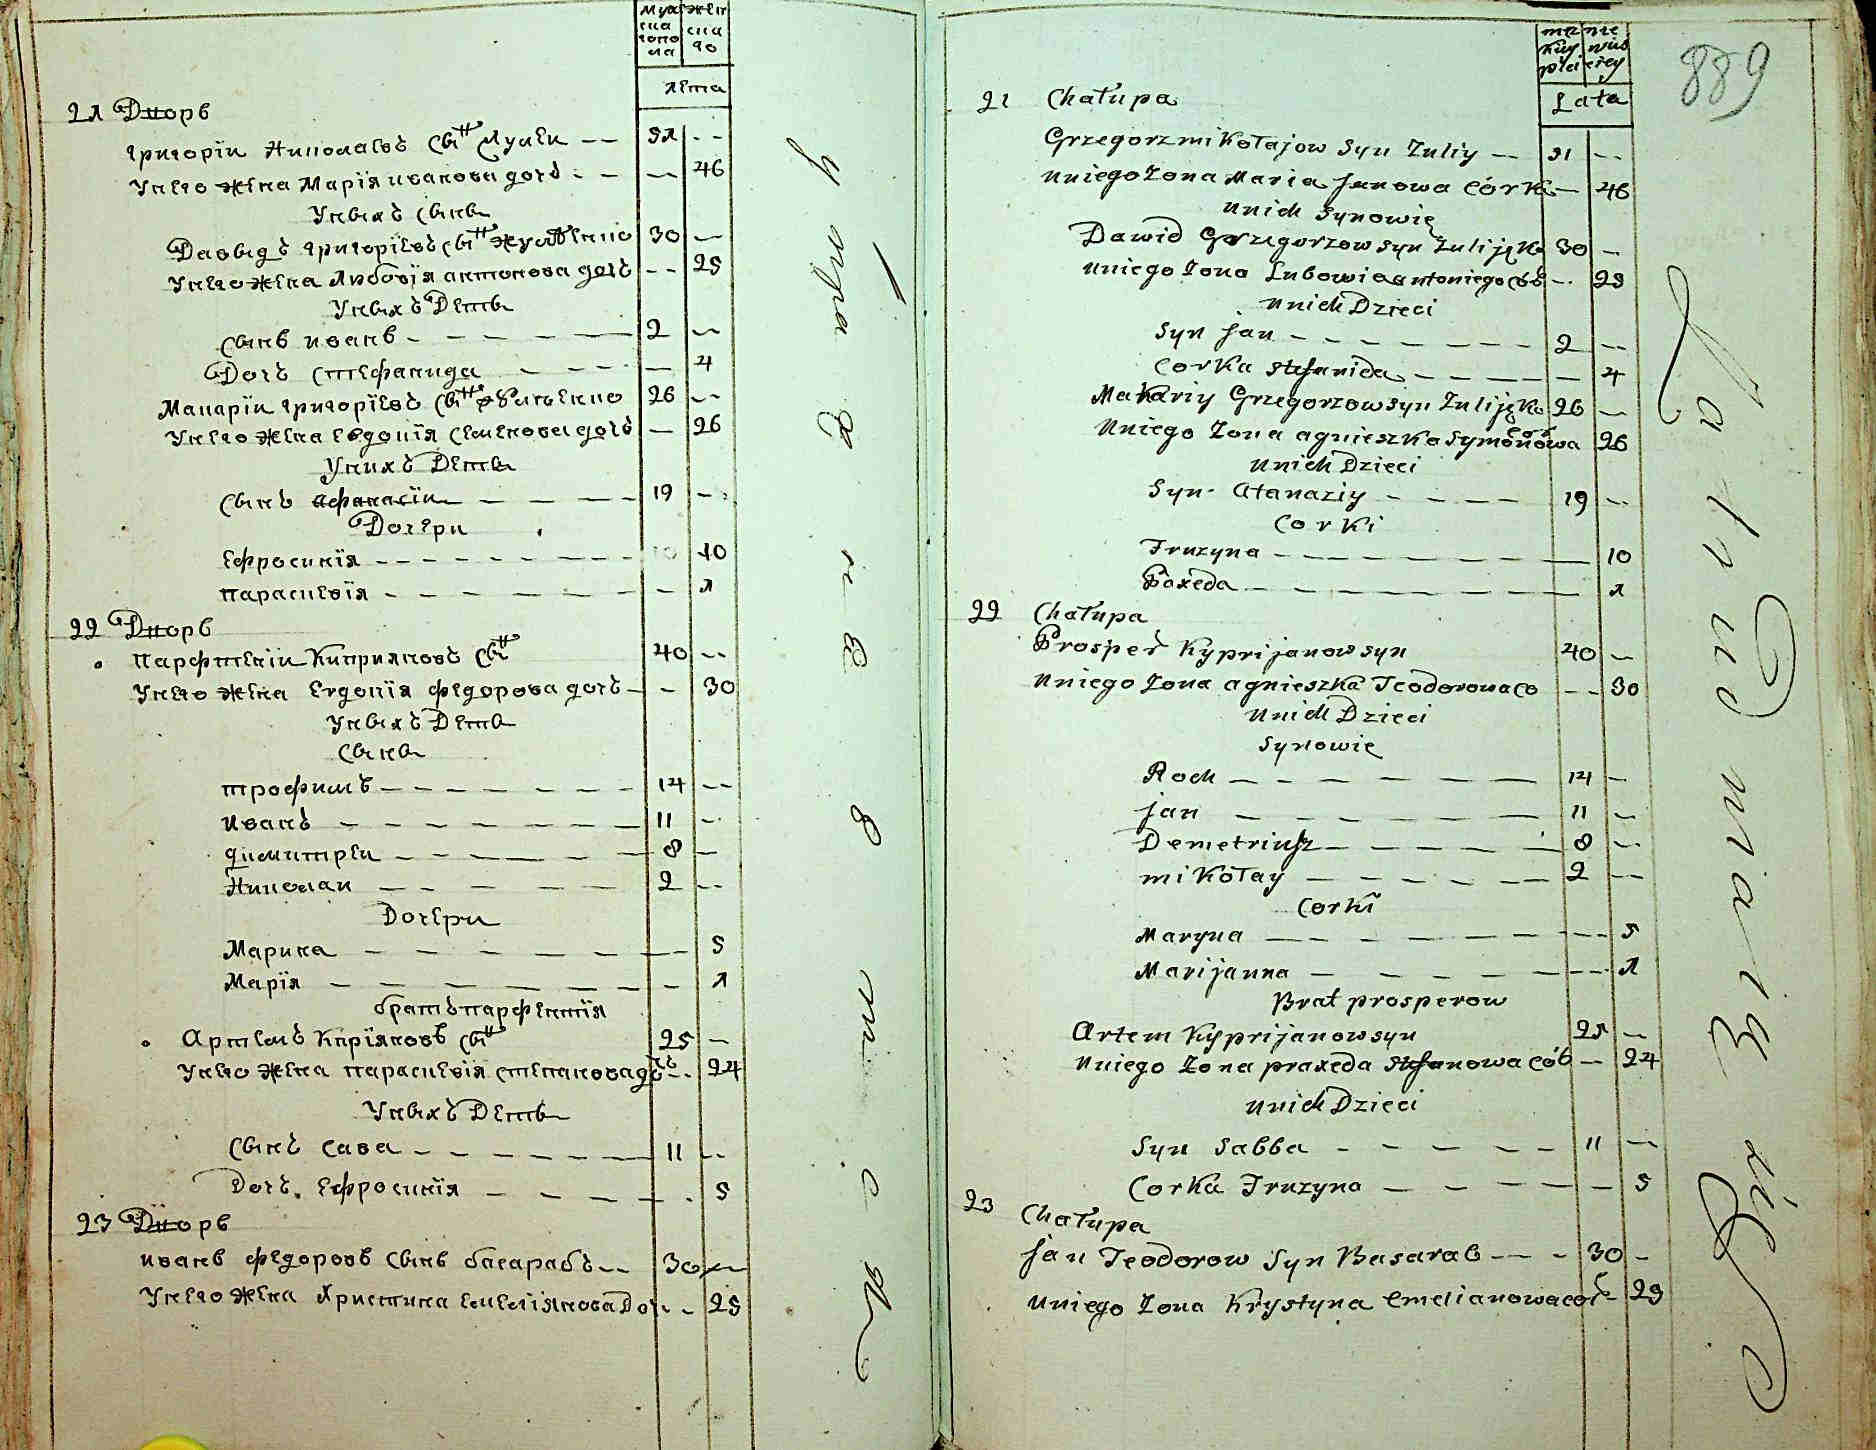 муж
ска
жен
ска
го
лета
21 Дворъ
Григорій Николаевъ сынъ
51 --
У него жена Марія Иванова дочь - - -- 46
У ныхъ сыны
Давидъ Григоріевъ сынъ 30 --
У него жена Любовія Антонова дочь -- 25
У ныхъ Дети
Сынъ Иванъ - - - - - 2 --
Дочь Стефанида - - - - 4
Макарій Григоріевъ сынъ 26 --
У него жена Евдокія Семенова дочь -- 26
У нихъ Дети
Сынъ Афанасій - - - - 19 --
Дочери
Ефросинія - - - - - - - 10
Параскевія - - - - - - - 1
22 Дворъ
Парфентій Киприяновъ сынъ 40 --
У него жена Евдокія Федорова дочь - - 30
У ныхъ Дети
Сыны
Трофимъ - - - - - - 14 --
Иванъ - - - - - - 11 --
Димитрей - - - - - 8 --
Николай - - - - - 2 --
Дочери
Марина - - - - - - 5
Марія - - - - - - - 1
братъ Парфентія
Артемъ Кпріяновъ сынъ 25 --
У него жена Параскевія Степанова дочь -- 24
У ныхъ Дети
Сынъ Сава - - - - - - 11 --
Дочь Ефросинія - - - - - 5
23 Дворъ
Иванъ Федоровъ сынъ Басарабъ -- 30 --
У него жена Христина Емеліянова Доч - - 25
889
Lata
21 Chałupa
Grzegorz mikołajow Syn Zuliy -- 51 --
uniego Zona Maria Janowa Córka -- 46
unich Synowie
Dawid Grzegorzow syn Zulijęko 30 --
uniego Zona Lubowia antoniego cór -- 25
unich Dzieci
Syn Jan - - - - - - - 2 --
Corka Stefanida - - - - - 4
Makariy Grzegorzow syn Zulijęko 26 --
Uniego Zona agnieszka Symonowa cor 26
unich Dzieci
Syn Atanaziy - - - - 19 --
Corki
Fruzyna - - - - - - - 10
Paxeda - - - - - - - 1
22 Chałupa
Prosper Kyprijanow syn 40 --
Uniego Zona agnieszka Teodorowa co -- 30
Unich Dzieci
Synowie
Roch - - - - - - 14 --
Jan - - - - - - 11 --
Demetriusz - - - - - 8 --
mikołay - - - - - 2 --
Corki
Maryna - - - - - - -- 5
Marijanna - - - - - -- 1
Brat prosperow
Artem Kyprijanow syn 25 --
uniego Zona praxeda Stefanowa cór -- 24
unich Dzieci
Syn Sabba - - - - - 11 --
Corka Fruzyna - - - - - 5
23 Chałupa
Jan Teodorow Syn Basarab -- - 30 -
uniego Zona Krystyna Emelianowa cór 25